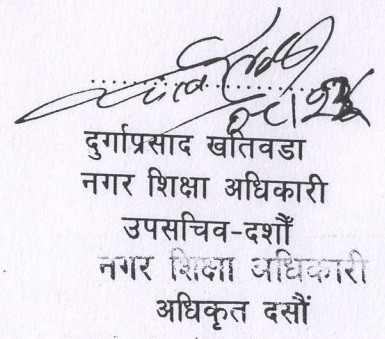 दुर्गाप्रसाद खतिवडा
नगर शिक्षा अधिकारी
उपसचिव-दशौँ
नगर शिक्षा अधिकारी
अधिकृत दसौं